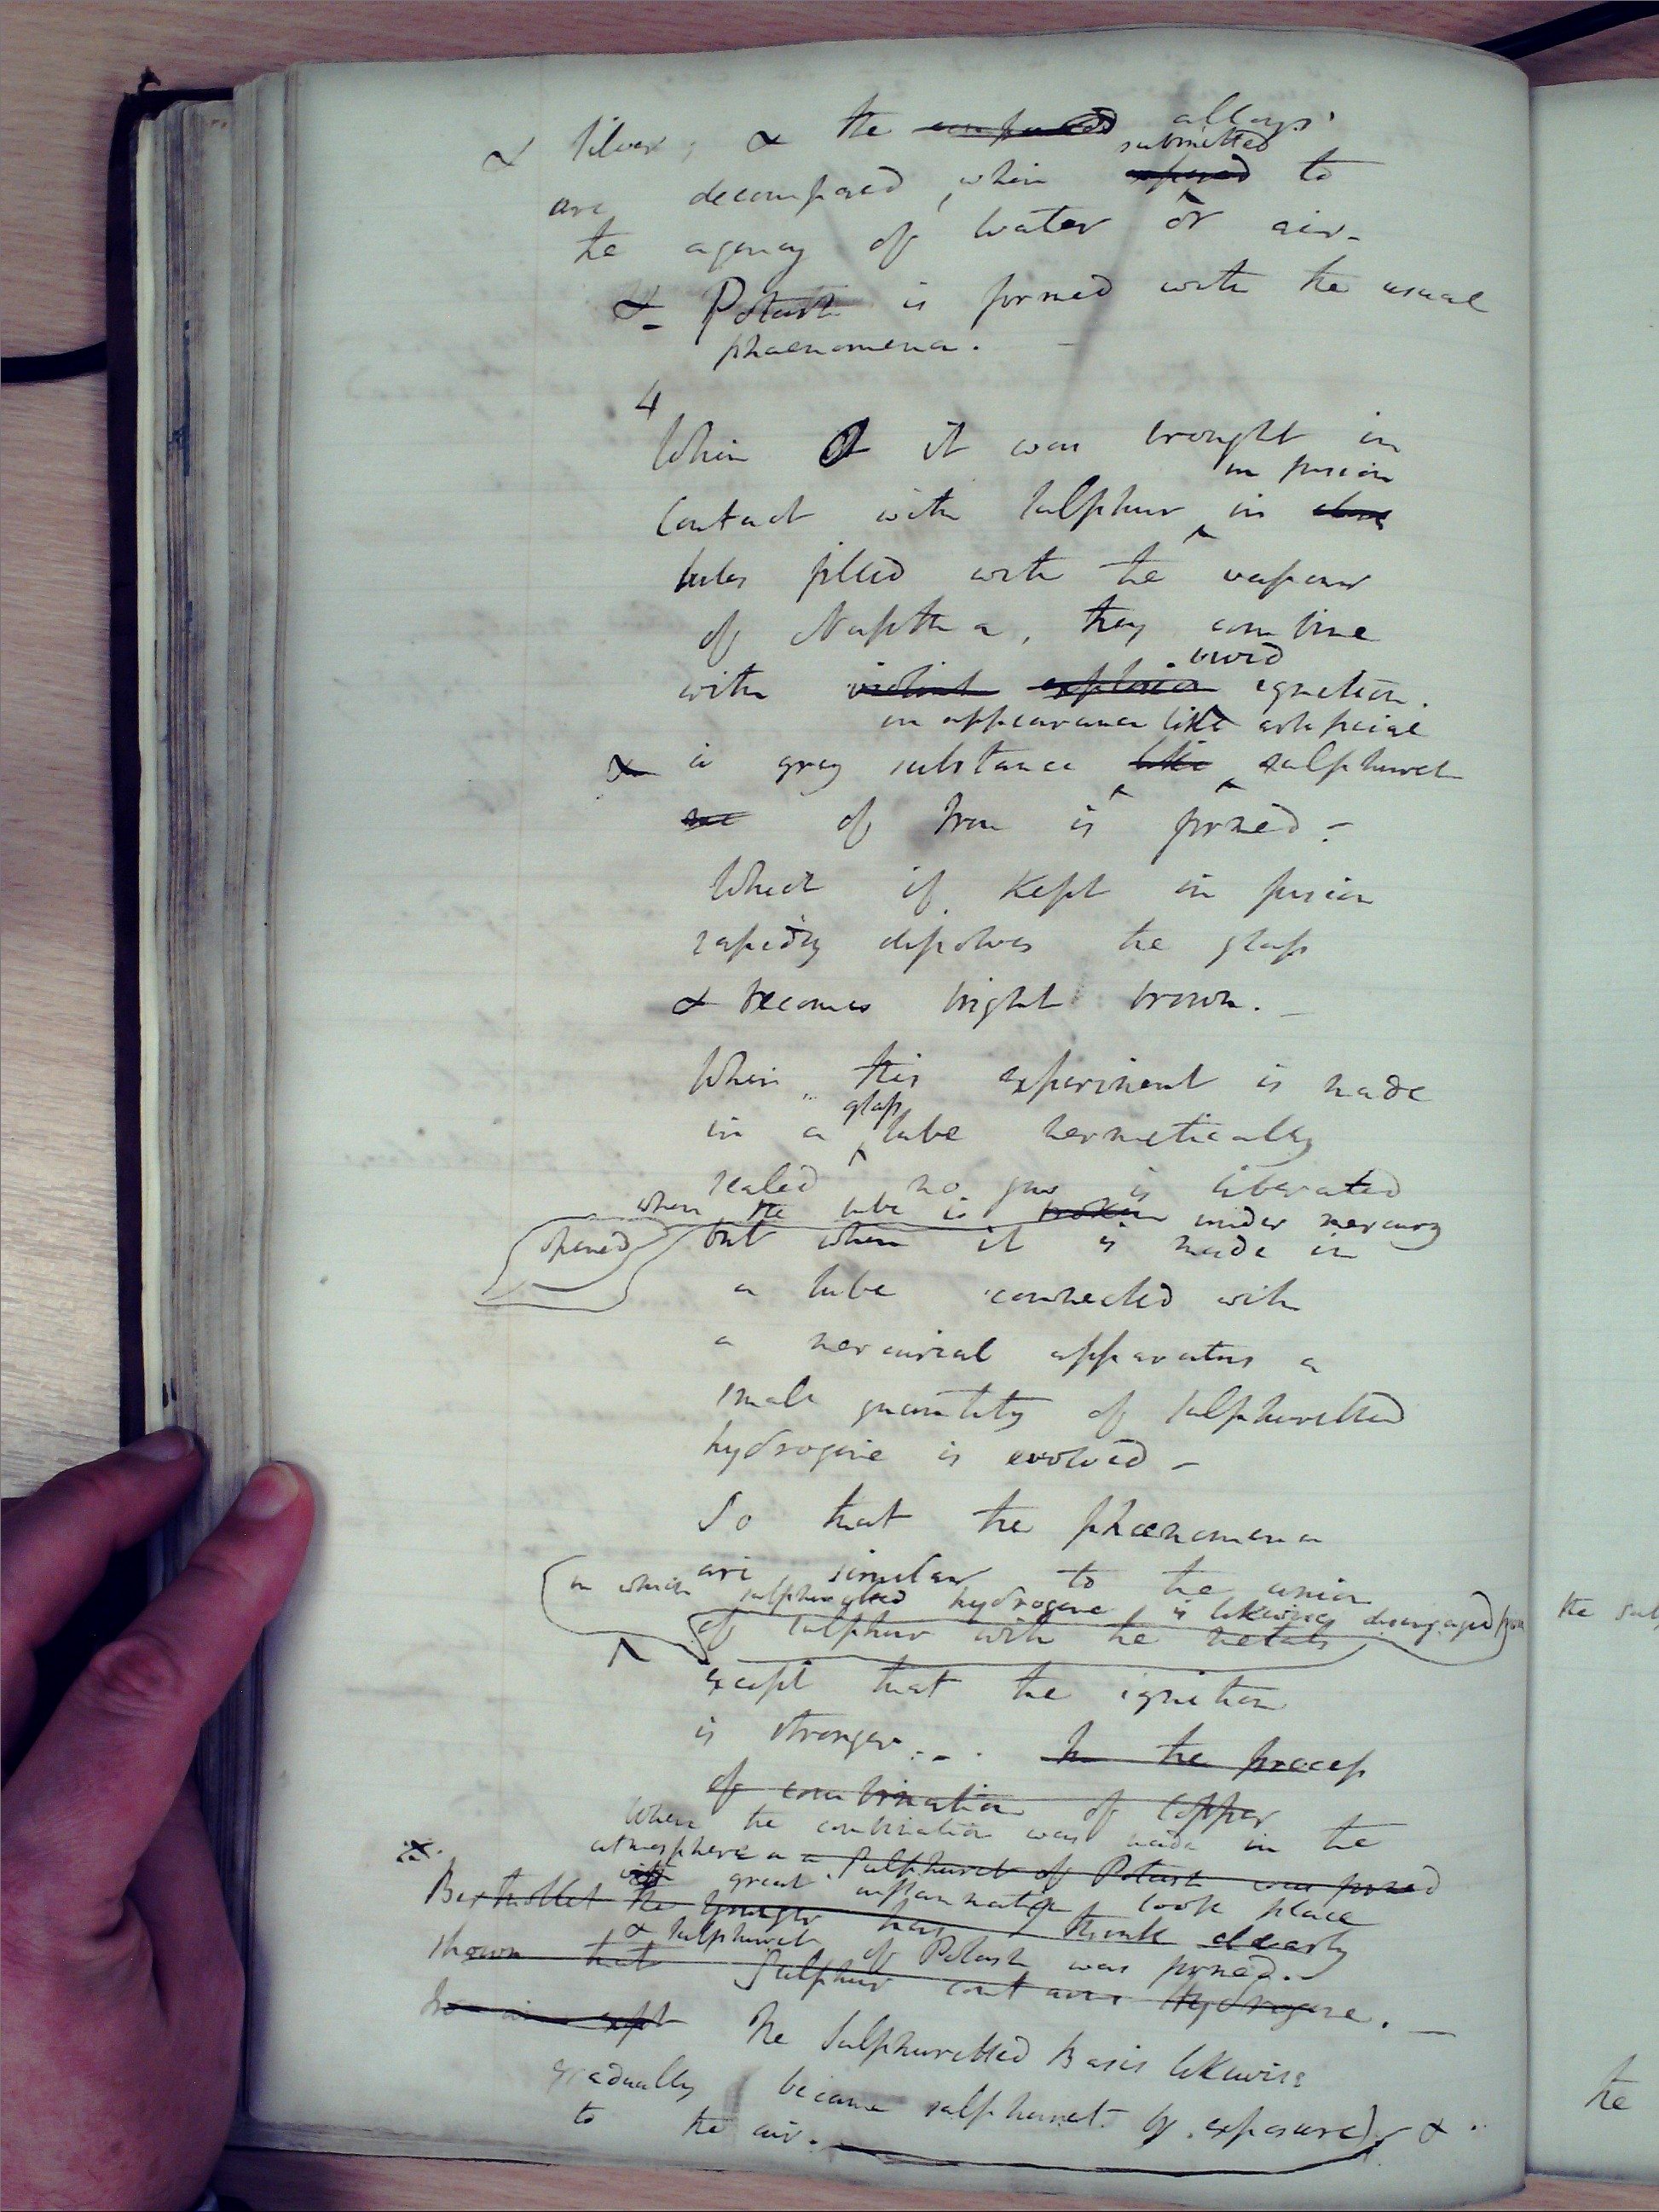 & silver; & the compounds alloys
submitted
are decomposed, when exposed to
the agency of water or air-
&- Potash is formed with the usual
phaenomena. -
4
When it was brought in
in fusion
contact with sulphur in close
tubes filled with the vapour
of Naptha, they combine
vivid
with violent explosion ignition.
in appearance like artificial
& a grey substance like sulphuret
of Iron is formed -
Which if kept in fusion
rapidly dissolves the glass
& becomes bright brown. -
When this experiment is made
glass
in a tube hermetically
sealed no gas is liberated
when the tube is broken under mercury
opened
but when it is made in
a tube connected with
a mercurial apparatus a
small quantity of sulphuretted
hydrogene is evolved -
So that the phaenomena
are similar to the union
in which sulphuretted hydrogene is likewise disengaged from
of sulphur with the metals
except that the ignition
is stronger. - . In the process
of combination of Copper
When the combination was made in the
atmosphere a a Sulphuret of Potash was formed
with great inflammation took place
Berthollet the younger has I think clearly
& sulphuret of Potash was formed. -
shown that Sulphur contains Hydrogene. -
The Sulphuretted Basis likewise
gradually became sulphuret by exposure &
to the air.
the sul
the